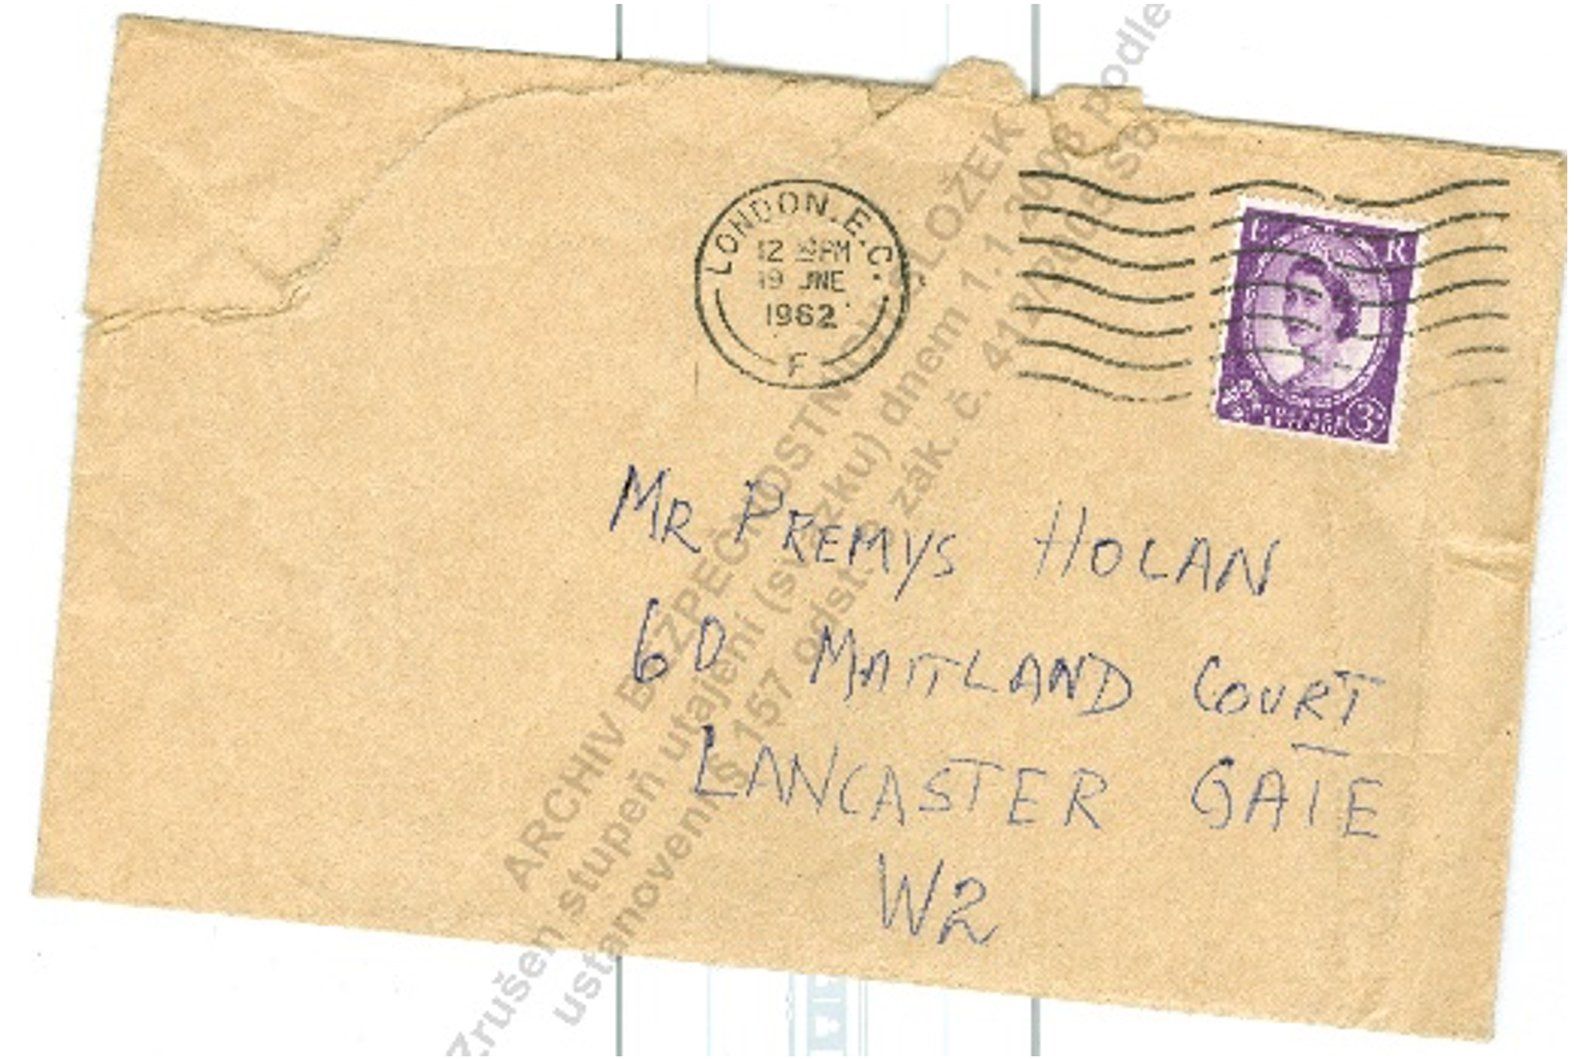 LONDON. E.C.
12 30 PM
19 JNE
1962
F
E R
3D
MR PREMYS HOLAN
6D MAITLAND COURT
LANCASTER GATE
W2
ARCHIV BEZPEČNOSTNÍCH SLOŽEK
Zrušen stupeň utajení (svazku) dnem 1.1.2008 podle
ustanovení § 157 odst. zák. č. 412/2005 Sb.